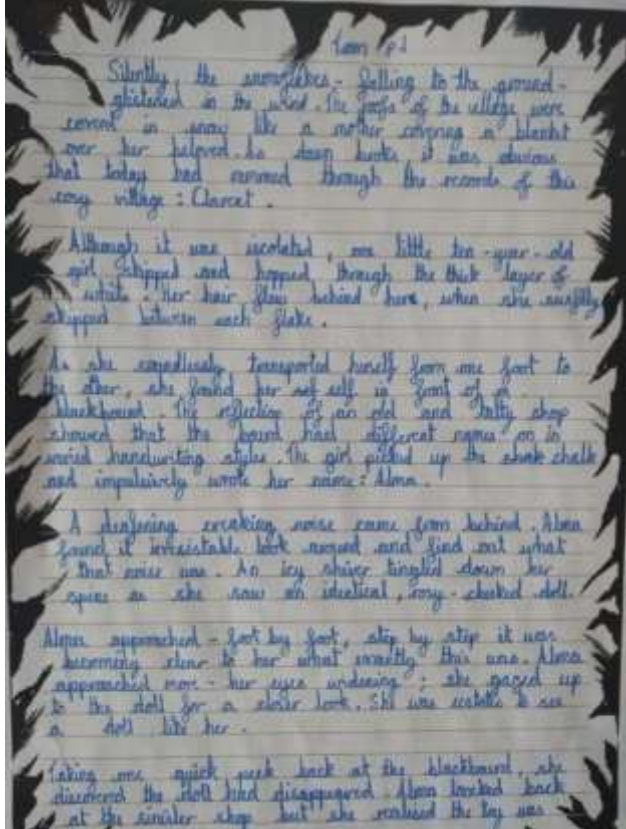 Silently, the snowflakes - falling to the ground -
glistened in the wind. The roofs of the village were
covered in snow like a mother covering a blanket
over her beloved. As dawn broke, it was obvious
that today had through the records of this
cosy village : Clarcet.
Although it was isolated, one little ten-year-old
girl skipped and hopped through the thick layer of
white. Her hair flew behind here, when she swiftly
skipped between each flake.
As she soundlessly transported herself from one foot to
the other, she found her self in front of a
blackboard. The reflection of an old and tatty shop
showed that the board had different names on in
varied handwriting styles. The girl picked up the chalk
and impulsively wrote her name: Alma.
A deafening creaking noise came from behind. Alma
found it irresistable look around and find out what
that noise was. An icy shiver tingled down her
spine as she saw an identical, rosy-cheeked doll.
Alma approached - foot by foot, step by step it was
becoming clear to her what exactly this was. Alma
approached more - her eyes widening ; she gazed up
to the doll for a closer look. She was ecstatic to see
a doll like her.
Taking one quick peek back at the blackboard, she
discovered the doll had disappeared. Alma looked back
at the sinister shop but she realised the toy was